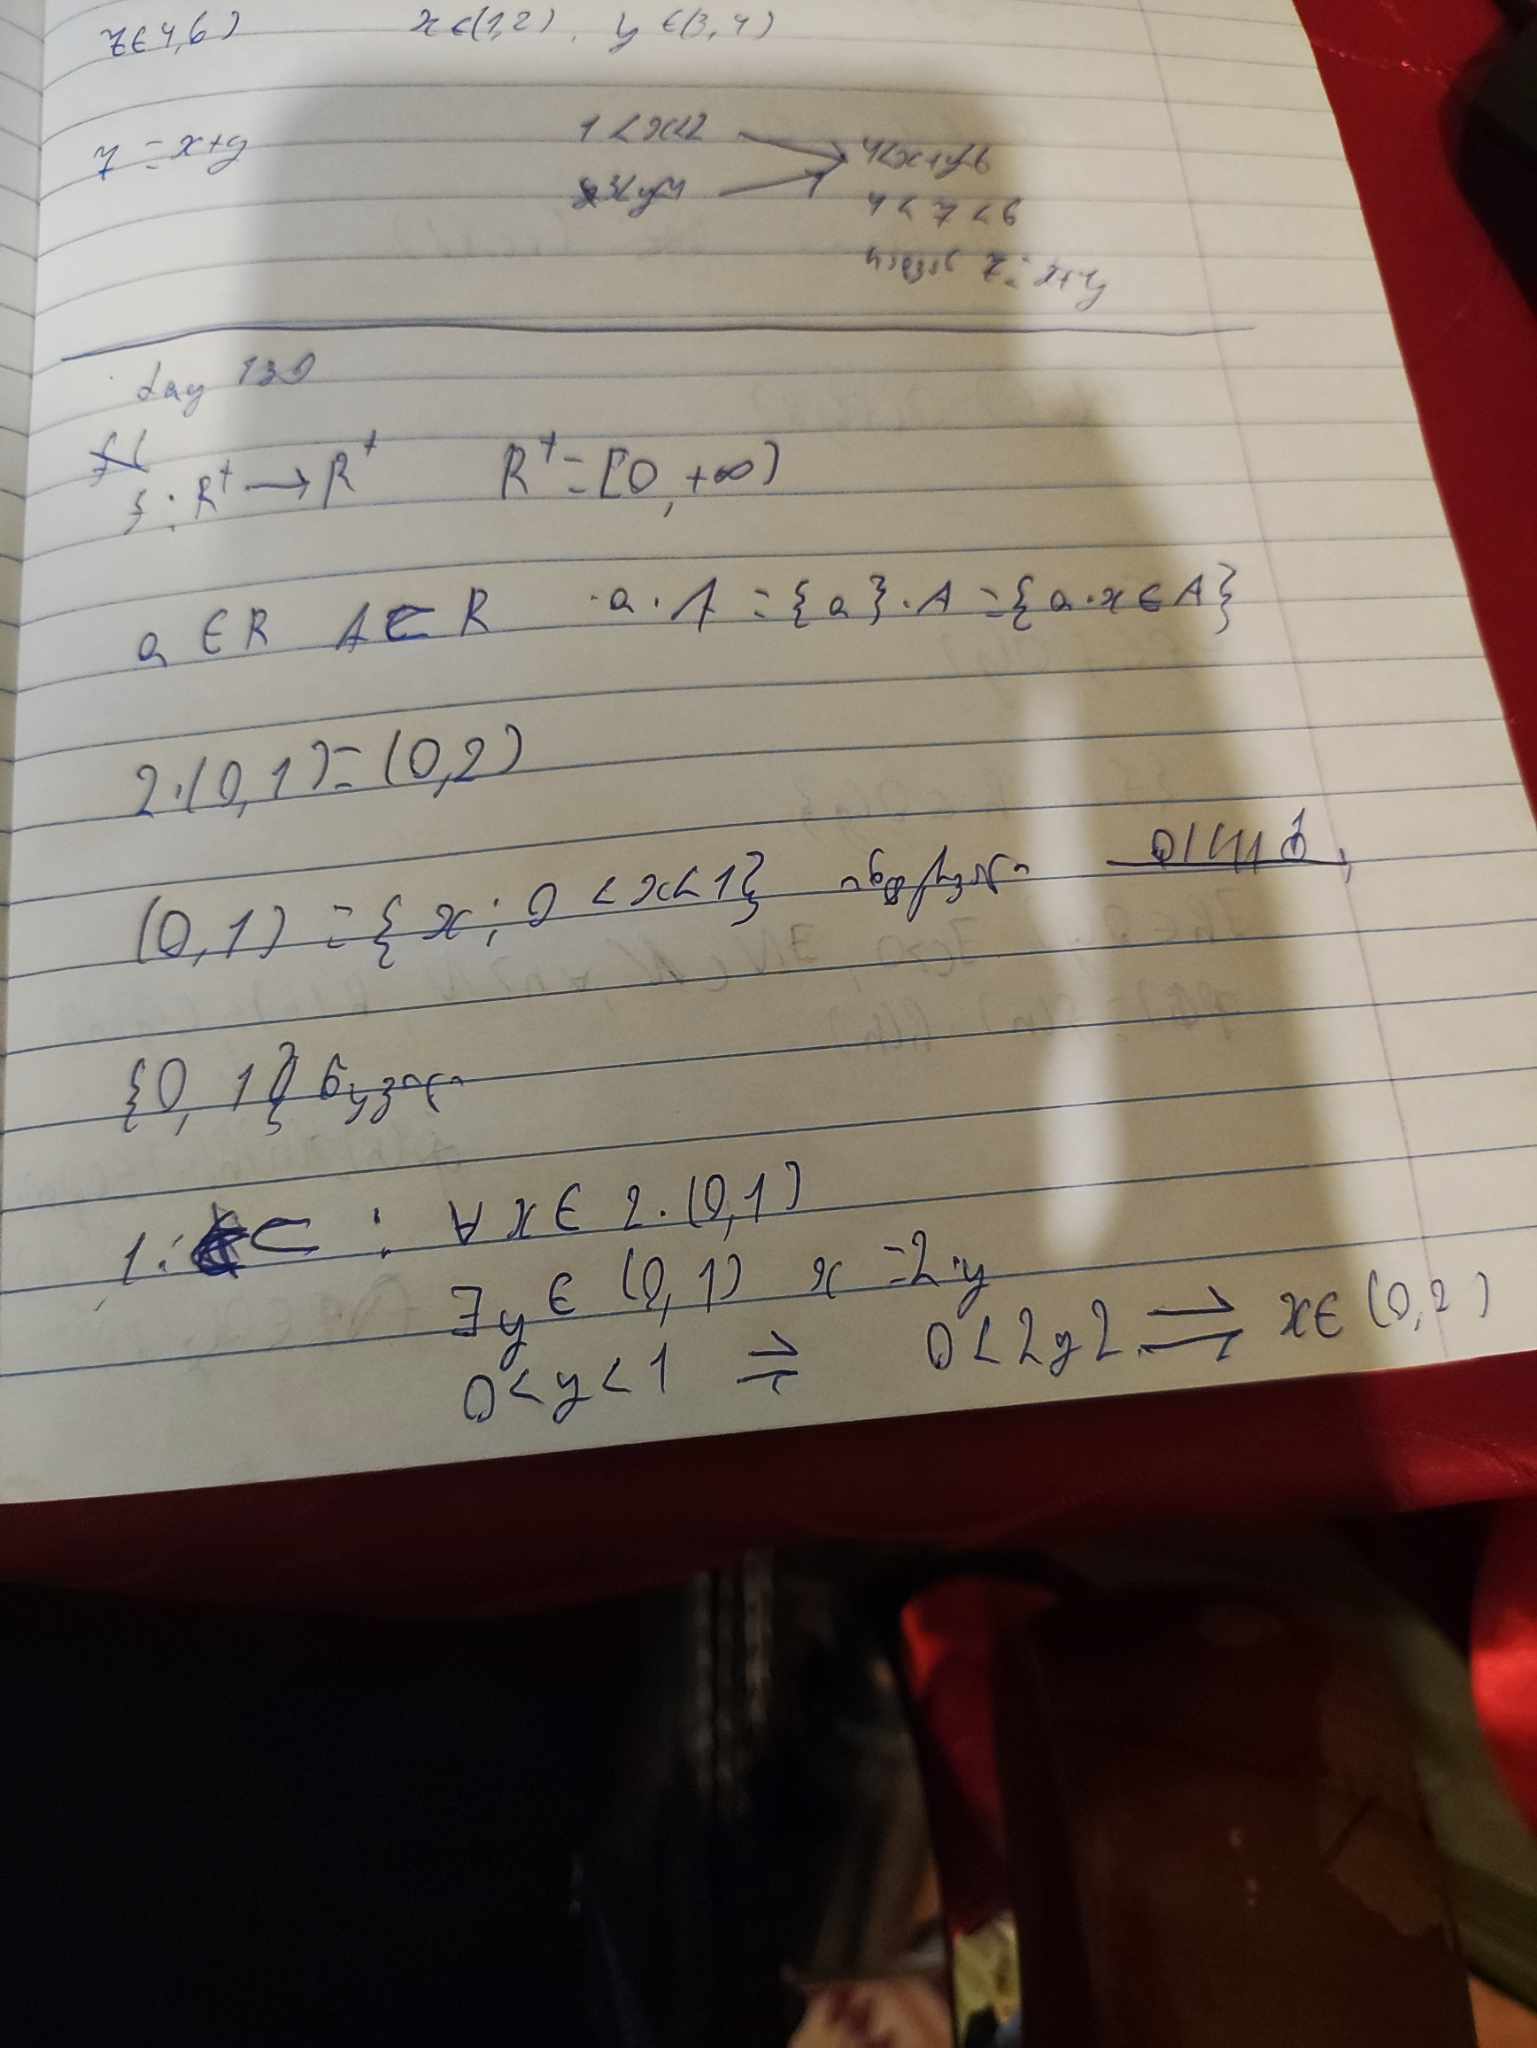 z∈4,6) x∈(1,2), y∈(3,4)
z = x+y 1<x<2 4<x+y<6
3<y<4 4<z<6
z = x+y
day 130
f: R⁺ → R⁺ R⁺ = [0, +∞)
a ∈ R A ⊂ R a·A = {a}·A = {a·x∈A}
2·(0,1) = (0,2)
(0,1) = {x; 0 < x < 1}
{0, 1}
1: ⊂ : ∀x∈ 2·(0,1)
∃y∈ (0,1) x = 2·y
0<y<1 ⇒ 0<2y2 ⇒ x∈(0,2)